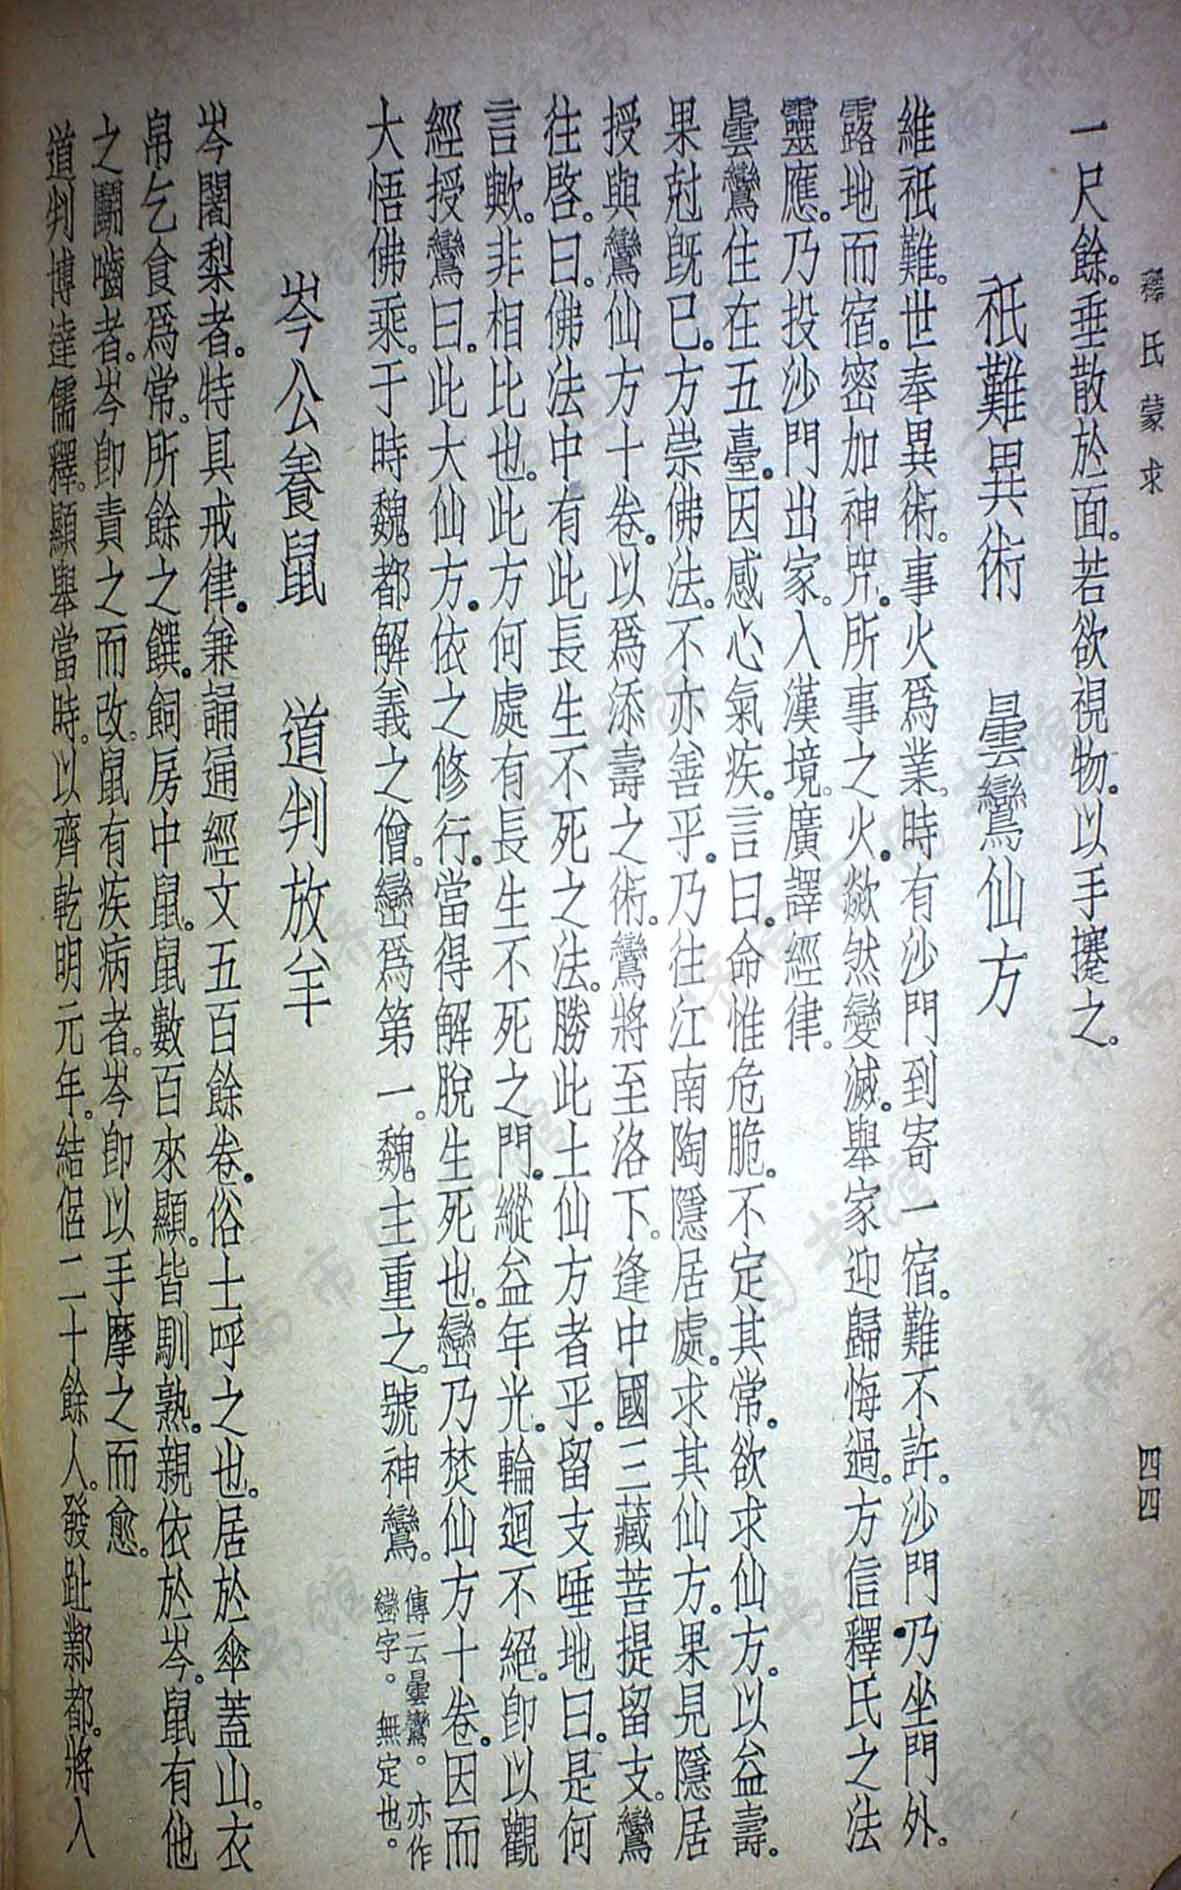 釋氏蒙求
四四
一尺餘。垂散於面。若欲視物。以手攓之。
祇難異術　曇鸞仙方
維祇難。世奉異術。事火爲業。時有沙門到寄一宿。難不許。沙門乃坐門外。
露地而宿。密加神咒。所事之火。歘然變滅。舉家迎歸悔過。方信釋氏之法
靈應。乃投沙門出家。入漢境。廣譯經律。
曇鸞住在五臺。因感心氣疾。言曰。命惟危脆。不定其常。欲求仙方。以益壽。
果尅旣已。方崇佛法。不亦善乎。乃往江南陶隱居處。求其仙方。果見隱居
授與鸞仙方十卷。以爲添壽之術。鸞將至洛下。逢中國三藏菩提留支。鸞
往啓。曰。佛法中有此長生不死之法。勝此土仙方者乎。留支唾地曰。是何
言歟。非相比也。此方何處有長生不死之門。縱益年光。輪迴不絕。卽以觀
經授鸞曰。此大仙方。依之修行。當得解脫生死也。巒乃焚仙方十卷。因而
大悟佛乘。于時魏都解義之僧。巒爲第一。魏主重之。號神鸞。傳云曇鸞。亦作
巒字。無定也。
岑公養鼠　道判放羊
岑闍梨者。特具戒律。兼誦通經文五百餘卷。俗士呼之也。居於傘蓋山。衣
帛乞食爲常。所餘之饌。飼房中鼠。鼠數百來顯。皆馴熟。親依於岑。鼠有他
之鬭嚙者。岑卽責之而改。鼠有疾病者。岑卽以手摩之而愈。
道判博達儒釋。顯舉當時。以齊乾明元年。結侶二十餘人。發趾鄴都。將入